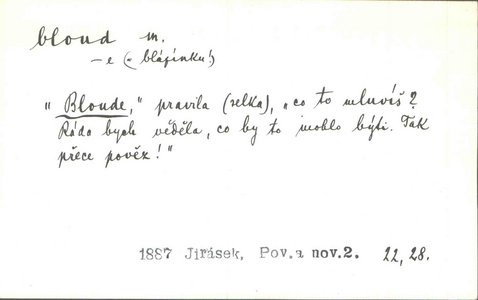 bloud m.
-e (= blázínku!)
„Bloude,“ pravila (selka), „co to mluvíš?
Ráda bych věděla, co by to mohlo býti. Tak
přece pověz!“
1887 Jirásek, Pov.a nov.2. 22,28.